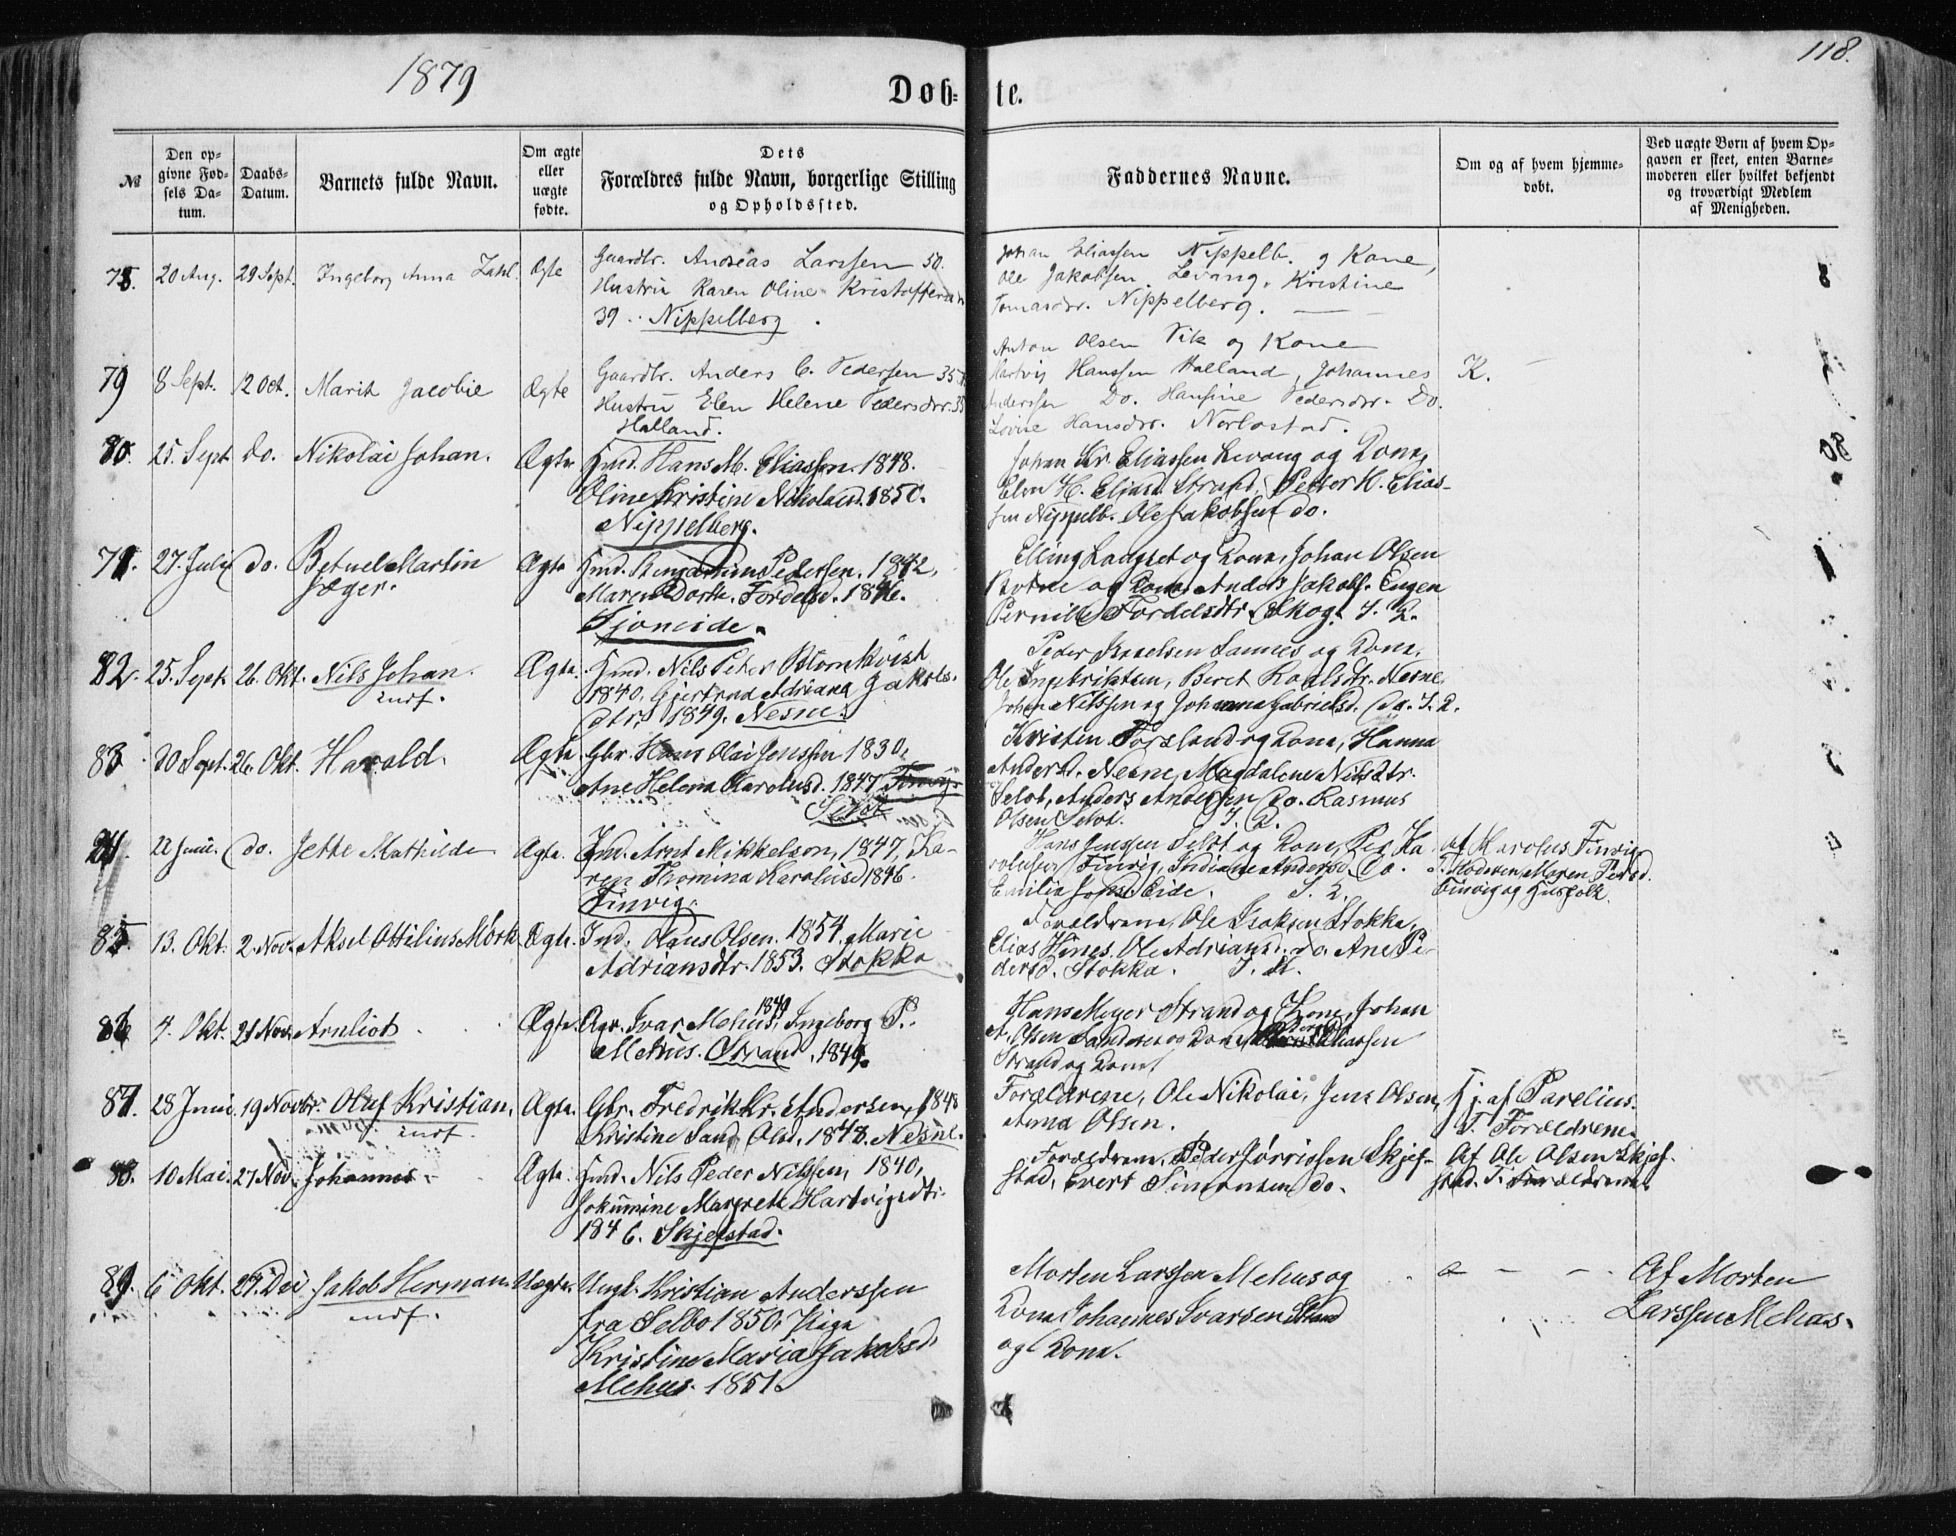 1879
118.
Døb-
te.
№
Den op-
givne Fød-
sels Da-
tum.
Daabs-
Datum.
Barnets fulde Navn.
Om ægte
eller
uægte
fødte.
Dets
Forældres fulde Navn, borgerlige Stilling
og Opholdssted.
Faddernes Navne.
Om og af hvem hjemme-
døbt.
Ved uægte Børn af hvem Op-
gaven er skeet, enten Barne-
moderen eller hvilket bekjendt
og troværdigt Medlem
af Menigheden.
78. 20 Aug. 29 Sept. Ingeborg Anna Zahl. Ægte
Gaardbr. Andreas Larssen 50.
Hustru Karen Oline
39 Nippelberg
Johan Eliassen Nippelb. og Kone,
Ole Jakobsen Levang. Kristine
Tomasdr. Nippelberg.
79 8 Sept. 12 Oct. Marit Jacobie Ægte
Gaardbr. Anders C. Pedersen 35
Hustru Elen Helene Pedersdr. 35
Halland.
Anton Olsen Vik og Kone
Hartvig Hanssen Halland, Johannes
Anderssen Do. Hansine Pedersdr. Do.
Lovise Hansdr.
K.
80. 25. Sept. do. Nikolai Johan. Ægte
Hmd. Hans M. Eliassen. 1848.
Oline Kristine Nikolaisd. 1850.
Nippelberg.
Johan Kr. Eliassen Levang og Kone,
Elen H. Eliasd. Strand, Petter K. Elias-
sen Nippelb. Ole Jakobsen do.
27. Juli do. Betuel Martin
Jæger.
Ægte
Hmd. Pedersen. 1842,
Maren Dorth. Fordelsd. 1846.
Sjoneide.
Elling Langset og Kone, Johan Olsen
og Kone, Anders Jakobs. Eugen
Pernille Fordelsdtr. Skog.
82. 25. Sept. 26. Okt. Nils Johan.
indf.
Ægte.
Hmd. Nils Peter Blomkvist
1840, Gjertrud Adriana Jakobs-
dtr. 1849. Nesne.
Peder Sannes og Kone,
Ole Ingebriktsen, Beret Nesne,
Johan Nilssen og Johanna Gabrielsd. do.
83 30 Sept. 26. Okt. Harold. Ægte.
Gbr. Hans Olai Jenssen 1830,
Ane Helena Karolusd. 1847
Selot
Kristen Forsland og Kone, Hanna
Andersd. Nesne, Magdalene Nilsdtr.
Selot, Anders Andersen do. Rasmus
Olsen Selot.
84. 22 Juni. do. Jette Mathilde Ægte.
Ind. Arnt Mikkelsen, 1847, Ka-
ren Thomina Karolusd 1846.
Finvig.
Hans Jenssen Selot og Kone, Per Ka-
rolusen Finvig, Indiane Andersd. do.
Emilie Eide.
af Karolus Finvig
T. Moderen, Maren Persd.
Finvig og Husfolk.
85. 13. Okt. 2. Nov. Aksel Ottilius Mörk Ægte.
Ind. Olaus Olsen. 1854, Marie
Adriansdtr. 1853. Stokka
Forældrene, Ole Isaksen Stokka,
Elias Vines. Ole Adrians. do. Ane Pe-
dersd. Stokka.
86. 4. Okt. 21 Nov. Arnliot Ægte.
Ivar Mehus, 1849 Ingeborg P.
Mehus. Strand, 1849.
Hans Meyer Strand og Kone, Johan
A. Olsen Sandnes og Kone
Strand og Kone
87. 28 Juni. 19 Novbr. Oluf Kristian.
indf.
Ægte.
Gbr. Fredrik Kr. Andersen, 1848
Kristine Sand Olsd. 1848. Nesne.
Forældrene, Ole Nikolai, Jens Olsen,
Anna Olsen.
Hj. af Parelius.
T. Forældrene
88. 10 Mai. 27 Nov. Johannes. Ægte.
Hmd. Nils Peder Nilssen, 1840,
Jokumine Margrete Hartvigsdtr.
1846. Skjefstad.
Forældrene, Peder Skjef-
stad, Evert Simonsen do.
Af Ole Olsen Skjef-
stad. T. Forældrene.
89. 6 Okt. 27. Dec. Jakob Herman
indf.
Uægte.
Ungk. Kristian Anderssen
fra Selbo 1850, Pige
Kristine Maria Jakobsd.
Mehus. 1851.
Morten Larssen Mehus og
Kone Johannes Ivarsen Strand
og Kone.
Af Morten
Larssen Mehus.